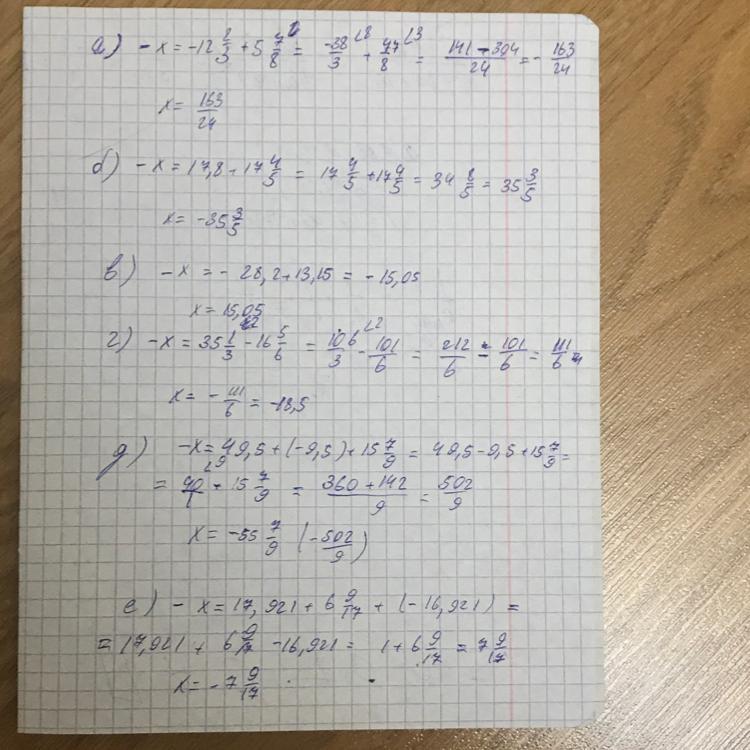 а) -x = -12 2/3 + 5 7/8 = -38/3 + 47/8 = 141-304/24 = - 163/24
x = 163/24
б) -x = 17,8 + 17 4/5 = 17 4/5 + 17 4/5 = 34 8/5 = 35 3/5
x = -35 3/5
в) -x = - 28,2+13,15 = -15,05
x = 15,05
г) -x = 35 1/3 - 16 5/6 = 106/3 - 101/6 = 212/6 - 101/6 = 111/6
x = - 111/6 = -18,5
д) -x = 49,5 + (-9,5) + 15 7/9 = 49,5 - 9,5 + 15 7/9 =
= 40/1 + 15 7/9 = 360 + 142/9 = 502/9
x = -55 7/9 (-502/9)
е) - x = 17,921 + 6 9/17 + (-16,921) =
= 17,921 + 6 9/17 - 16,921 = 1 + 6 9/17 = 7 9/17
x = - 7 9/17